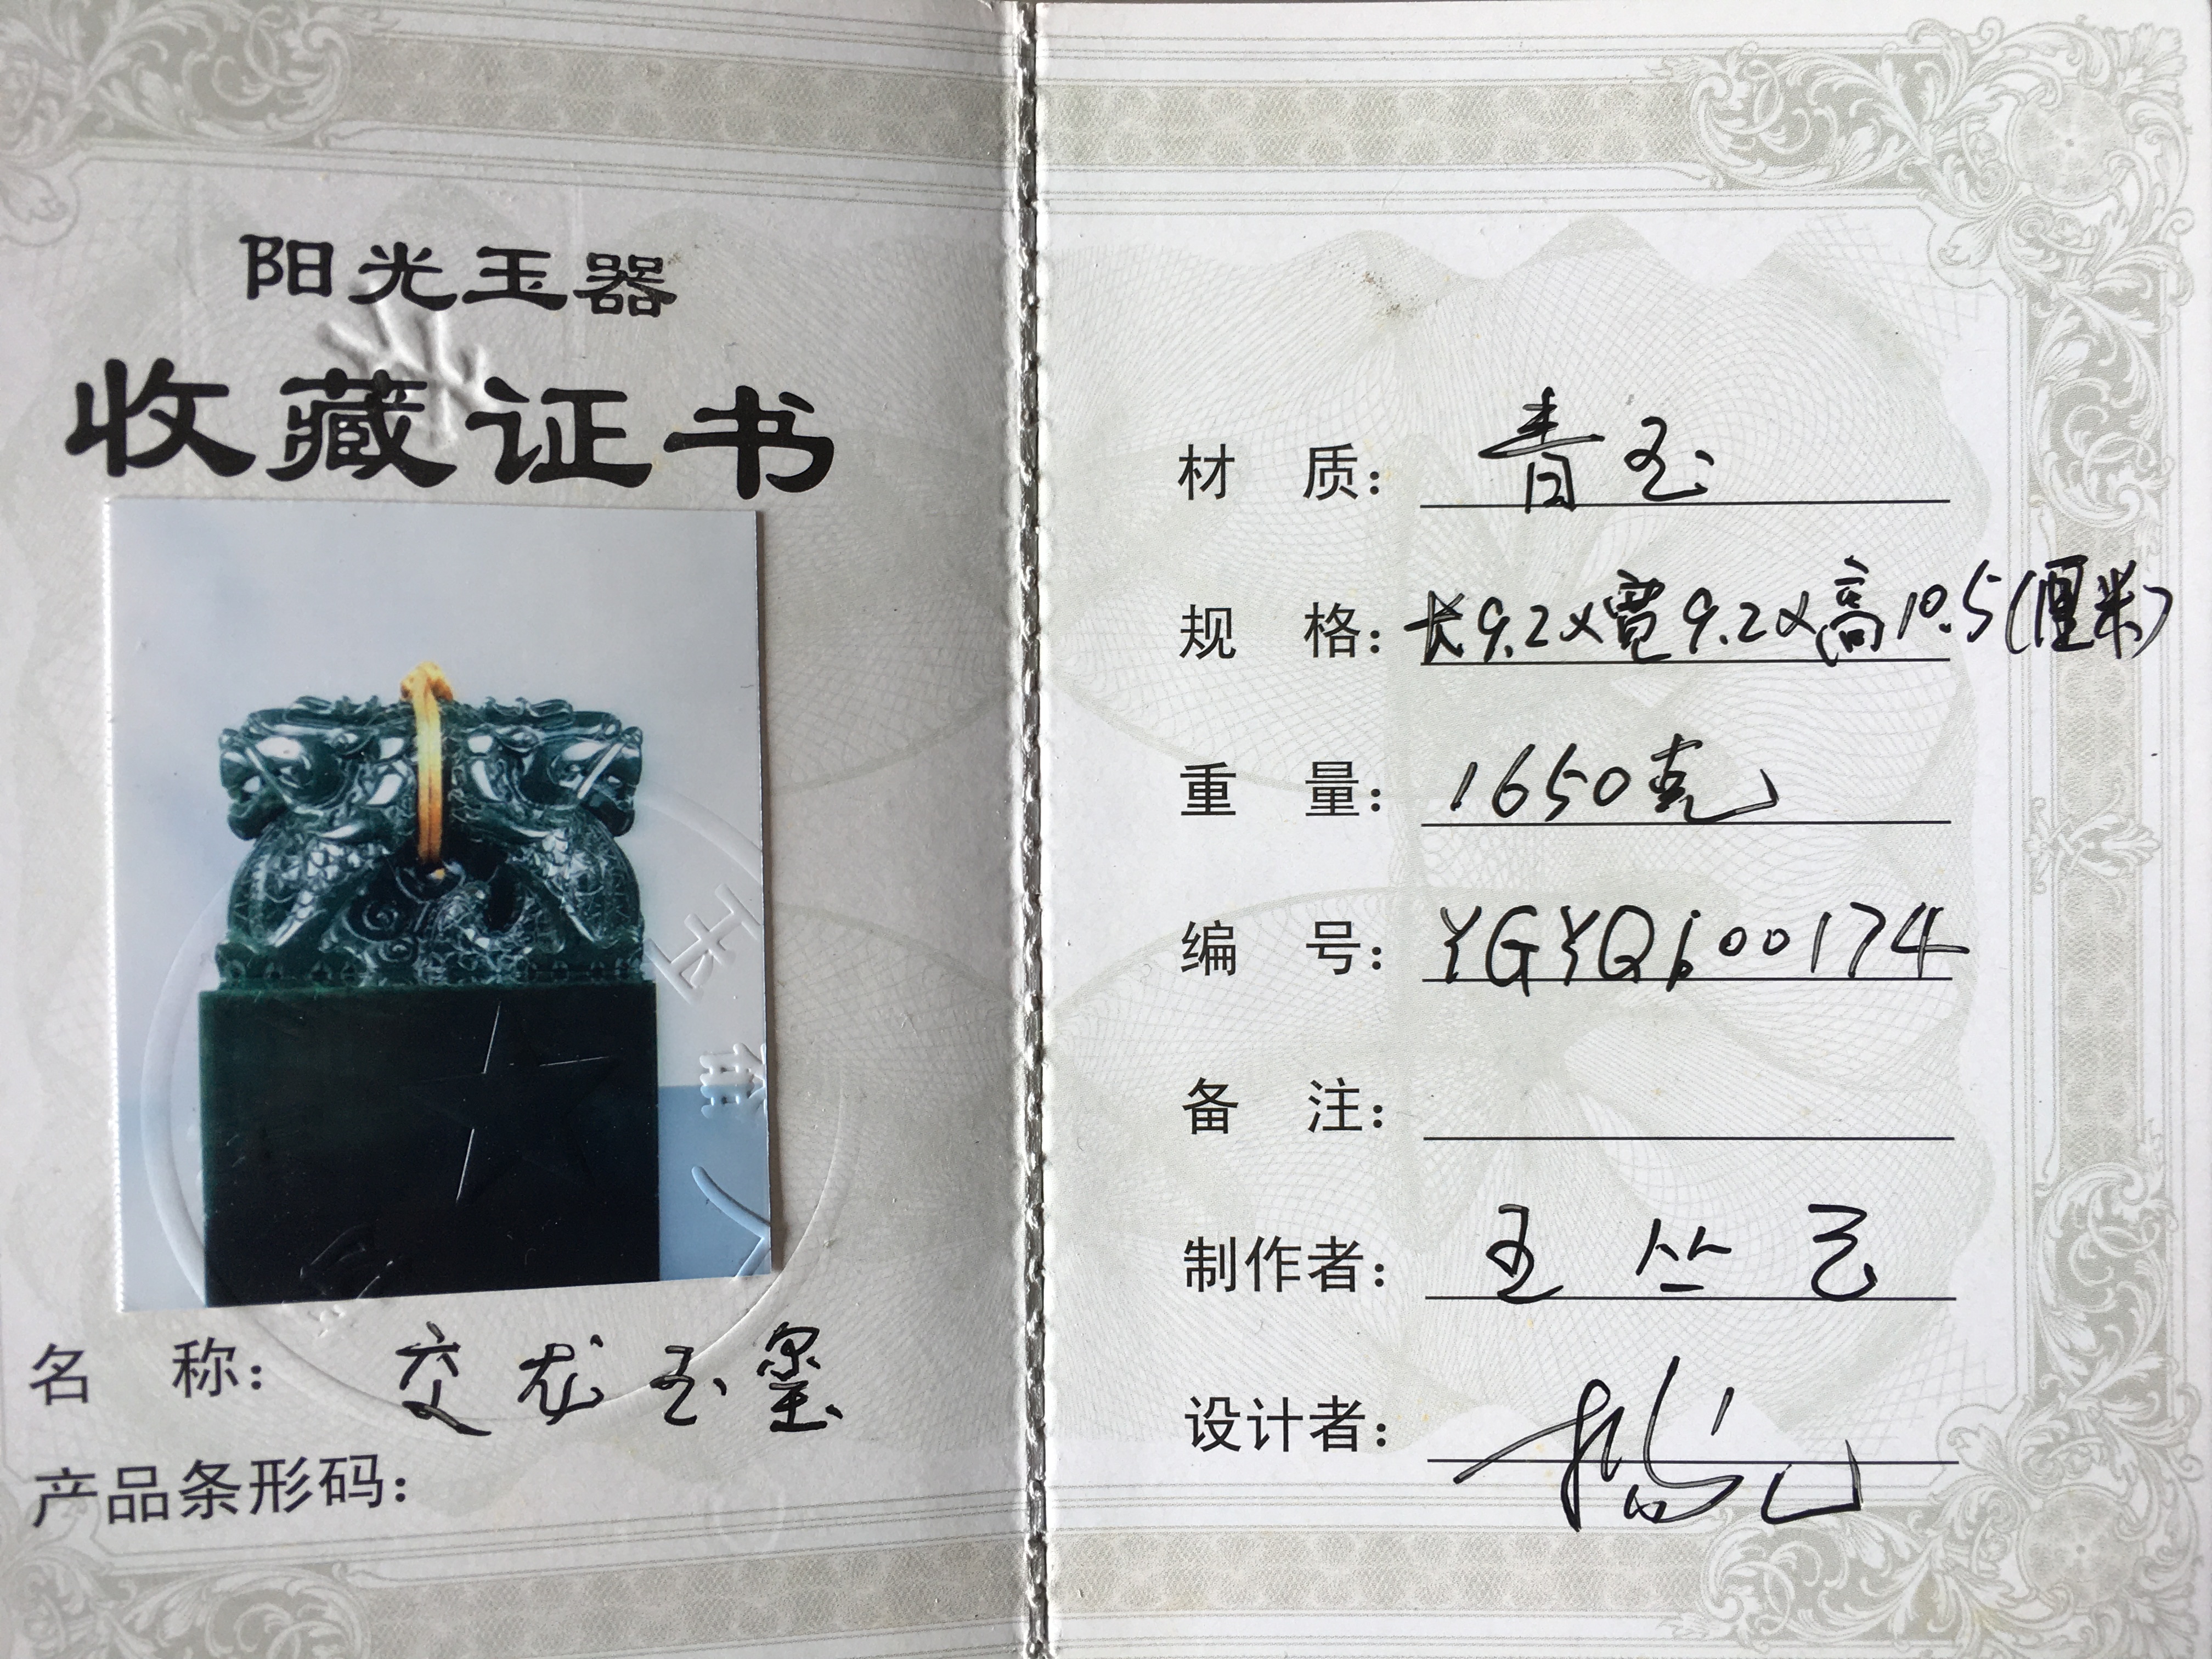 阳光玉器
收藏证书
名 称：交龙玉玺
产品条形码：
材 质：青玉
规 格：长9.2×宽9.2×高10.5(厘米)
重 量：1650克
编 号：YGYQ600174
备 注：
制作者：王丛己
设计者：